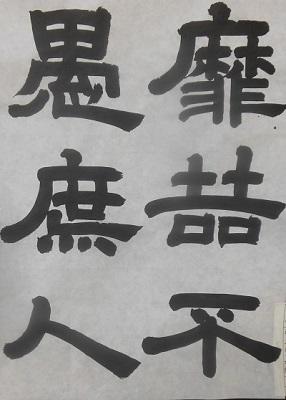 靡喆不
愚庶人